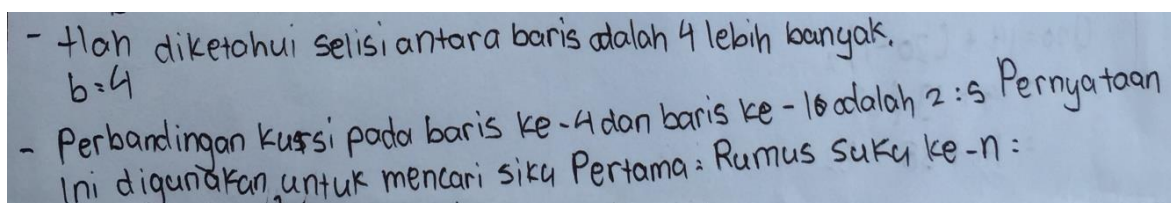 - tlah diketahui selisi antara baris adalah 4 lebih banyak.
b=4
- Perbandingan kursi pada baris ke-4 dan baris ke-16 adalah 2:5 Pernyataan
Ini digunakan untuk mencari siku Pertama: Rumus suku ke-n: